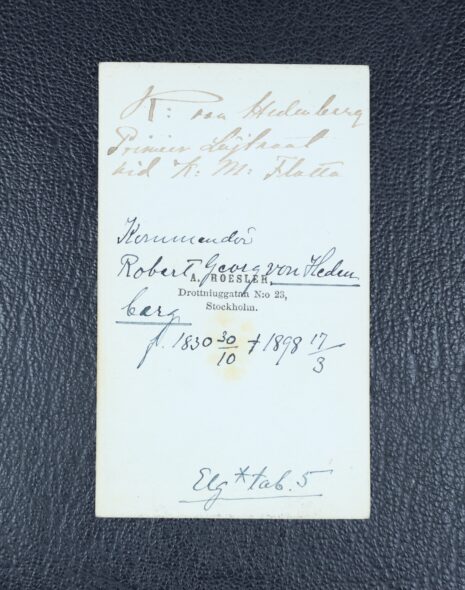 R: von Hedenberg
Premier Löjtnant
vid K: M: Flotta
Kommendör
Robert Georg von Heden
A. ROESLER,
Drottninggatan N:o 23,
berg
Stockholm.
f. 1830 30/10 † 1898 17/3
Elg * tab. 5